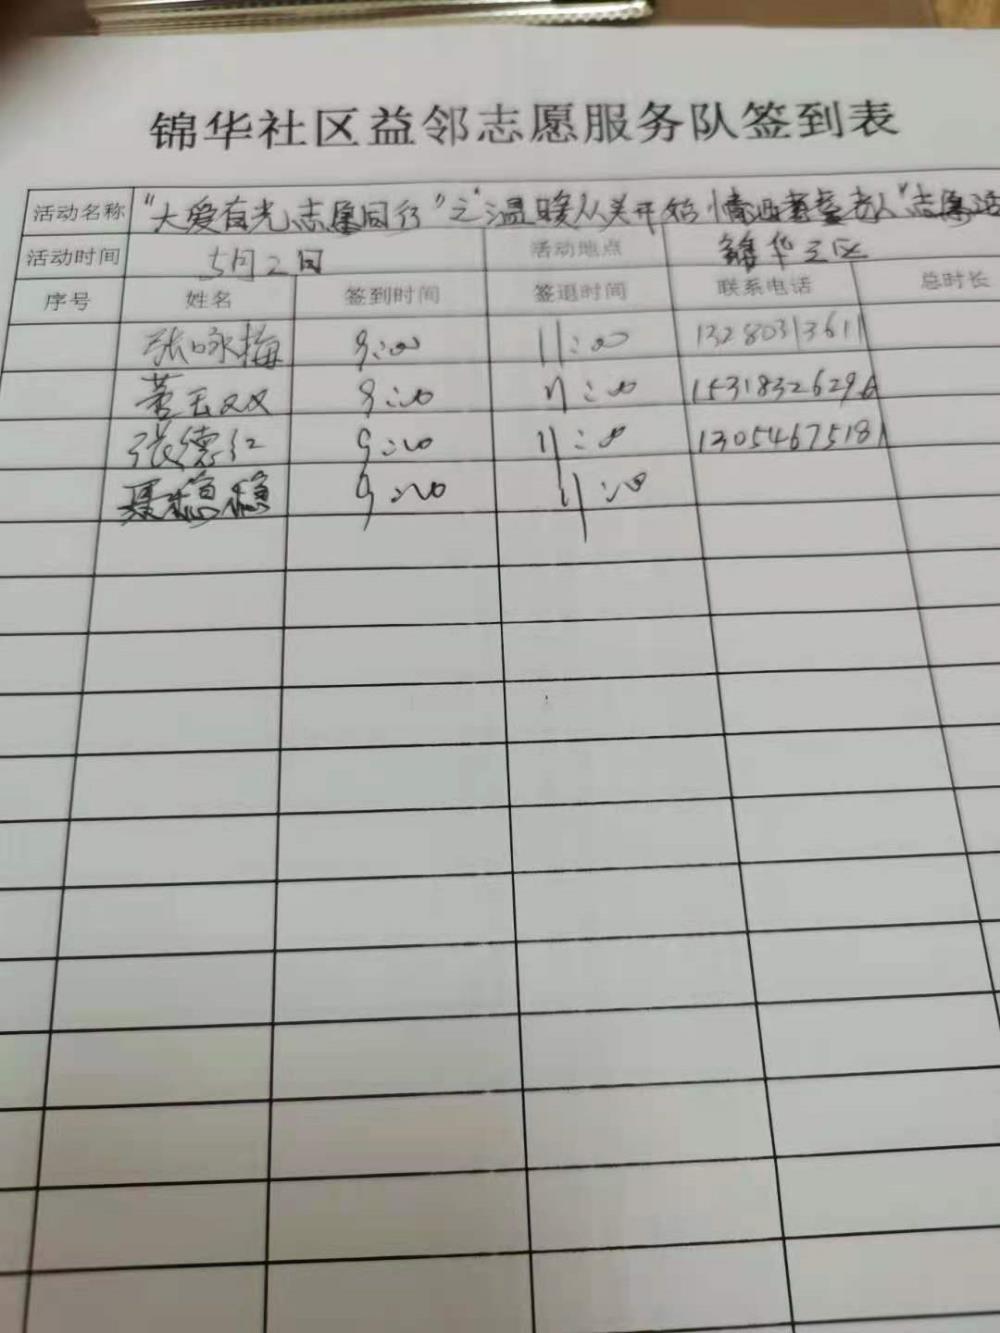 锦华社区益邻志愿服务队签到表
活动名称 "大爱有光,志愿同行"之"温暖从关开始 情洒耄耋老人"志愿活
活动时间 5月2日 活动地点 锦华社区
序号 姓名 签到时间 签退时间 联系电话 总时长
张咏梅 9:00 11:00 13280313611
董玉双 9:00 11:00 15318326296
张德红 9:00 11:00 13054675181
聂稳稳 9:00 11:00